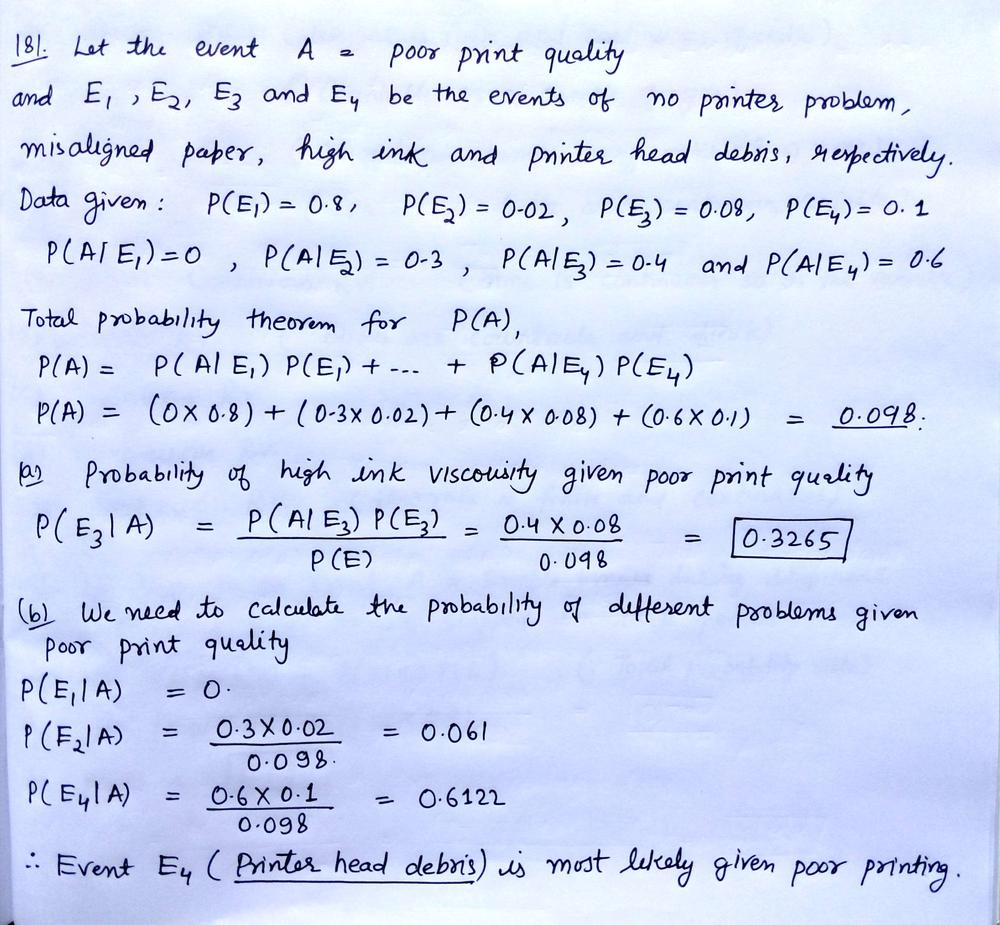 181. Let the event A = poor print quality
and E₁, E₂, E₃ and E₄ be the events of no printer problem,
misaligned paper, high ink and printer head debris, respectively.
Data given: P(E₁) = 0.8, P(E₂) = 0.02, P(E₃) = 0.08, P(E₄) = 0.1
P(A|E₁) = 0, P(A|E₂) = 0.3, P(A|E₃) = 0.4 and P(A|E₄) = 0.6
Total probability theorem for P(A),
P(A) = P(A|E₁) P(E₁) + --- + P(A|E₄) P(E₄)
P(A) = (0 × 0.8) + (0.3 × 0.02) + (0.4 × 0.08) + (0.6 × 0.1) = 0.098.
(a) Probability of high ink viscousity given poor print quality
P(E₃|A) = P(A|E₃) P(E₃) / P(E) = 0.4 × 0.08 / 0.098 = 0.3265
(b) We need to calculate the probability of different problems given
poor print quality
P(E₁|A) = 0.
P(E₂|A) = 0.3 × 0.02 / 0.098. = 0.061
P(E₄|A) = 0.6 × 0.1 / 0.098 = 0.6122
∴ Event E₄ (Printer head debris) is most likely given poor printing.